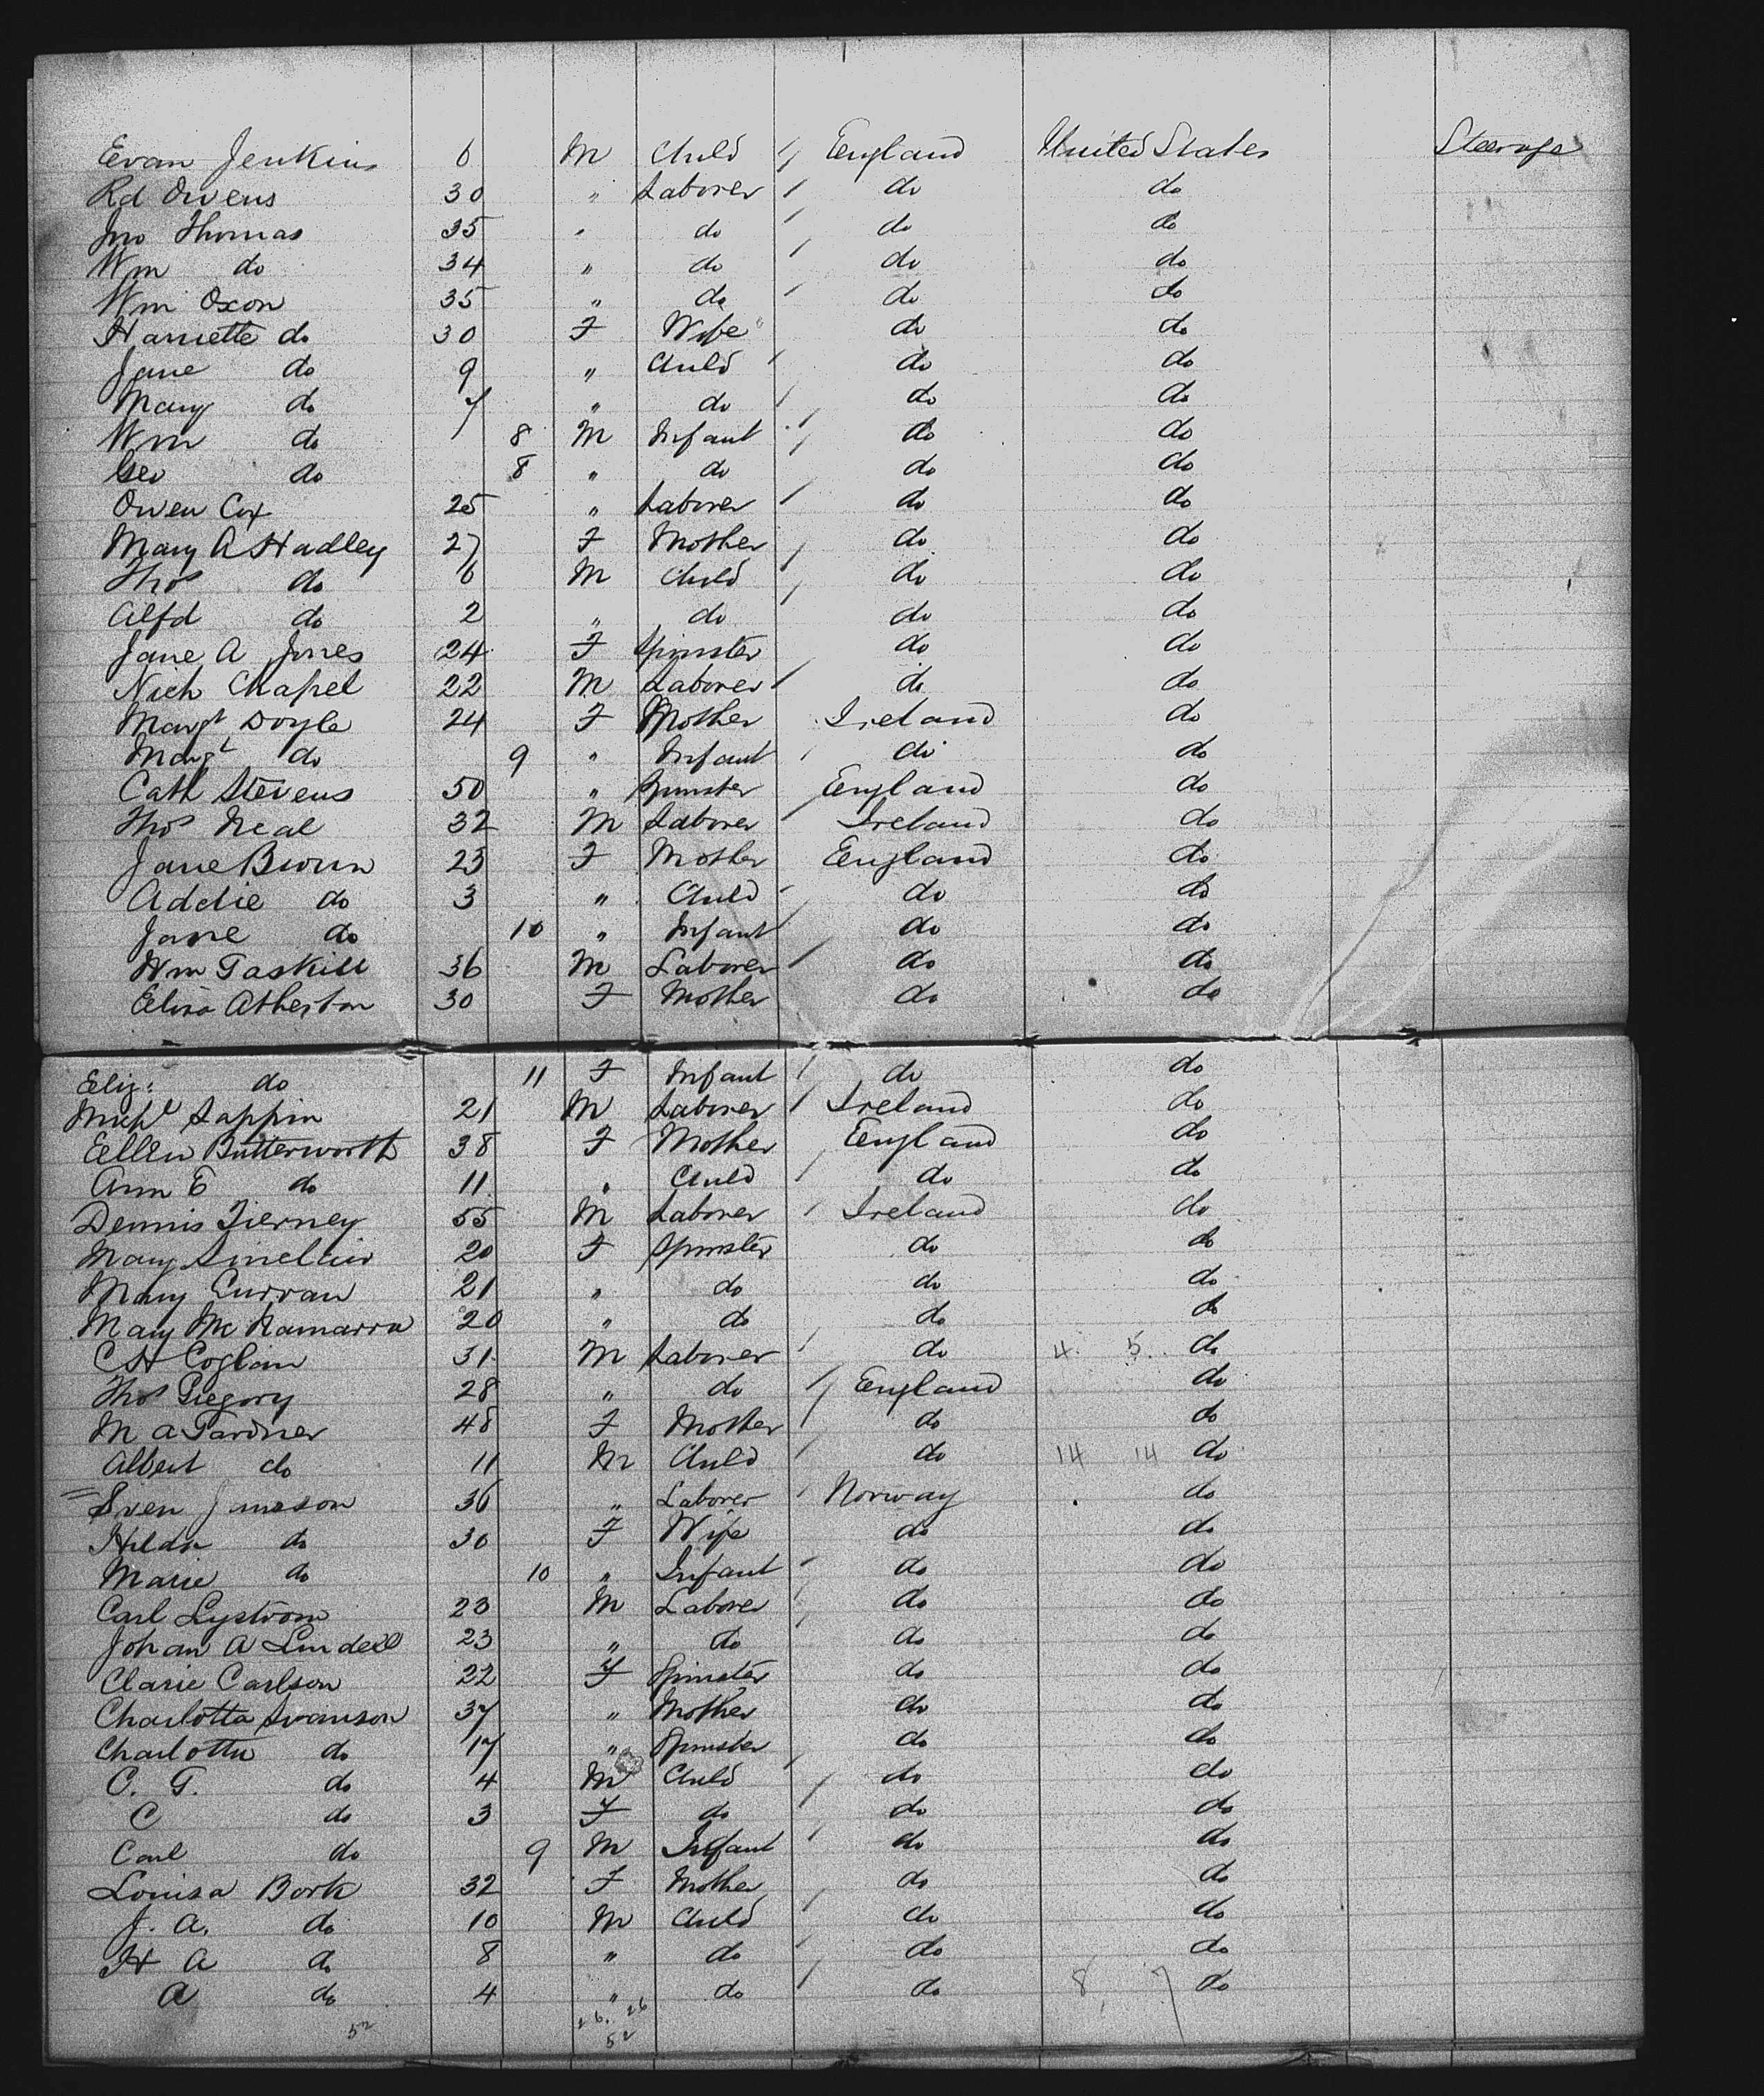 Evan Jenkins 6 M Child England United States Steerage
Rd Owens 30 " Laborer do do
Jno Thomas 35 " do do do
Wm do 34 " do do do
Wm Oxon 35 " do do do
Harriette do 30 F Wife do do
Jane do 9 " Child do do
Mary do 7 " do do do
Wm do 8 M Infant do do
Geo do 8 " do do do
Owen Cox 25 " Laborer do do
Mary A Hadley 27 F Mother do do
Thos do 6 M Child do do
Alfd do 2 " do do do
Jane A Jones 24 F Spinster do do
Nich Chapel 22 M Laborer do do
Margt Doyle 24 F Mother Ireland do
Margt do 9 " Infant do do
Cath Stevens 50 " Spinster England do
Thos Neal 32 M Laborer Ireland do
Jane Brown 23 F Mother England do
Addie do 3 " Child do do
Jane do 10 " Infant do do
Wm Gaskill 36 M Laborer do do
Eliza Atherton 30 F Mother do do
Eliz: do 11 F Infant do do
Michl Lappin 21 M Laborer Ireland do
Ellen Butterworth 38 F Mother England do
Ann E do 11 " Child do do
Dennis Tierney 55 M Laborer Ireland do
Mary Sinclair 20 F Spinster do do
Mary Curran 21 " do do do
Mary McNamarra 20 " do do do
C H Coglan 31 M Laborer do 4 5 do
Thos Gregory 28 " do England do
M A Gardner 48 F Mother do do
Albert do 11 M Child do 14 14 do
Sven 36 " Laborer Norway do
Hilda do 30 F Wife do do
Marie do 10 " Infant do do
Carl Lystrom 23 M Laborer do do
Johan A Lindell 23 " do do do
Clarie Carlson 22 F Spinster do do
Charlotta Swanson 37 " Mother do do
Charlotta do 17 " Spinster do do
C. G. do 4 M Child do do
C do 3 F do do do
Carl do 9 M Infant do do
Louisa Bork 32 F Mother do do
J. A. do 10 M Child do do
H A do 8 " do do do
A do 4 " do do 8 7 do
52 26. 26
52